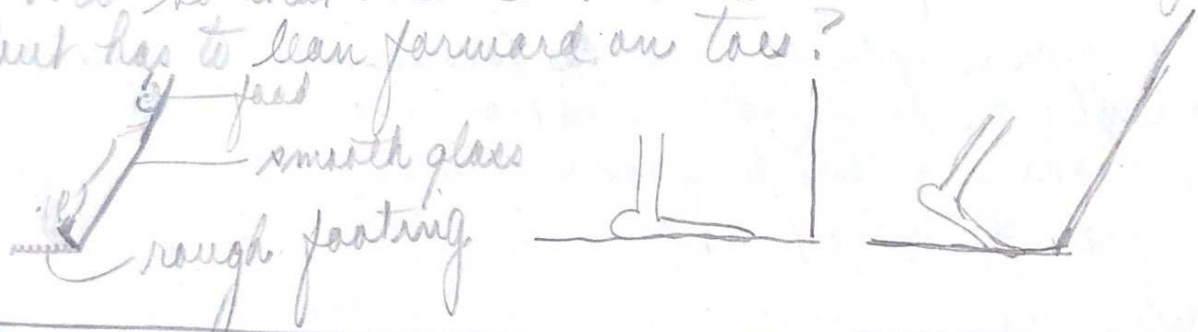 but has to lean forward on toes?
food
smooth glass
rough footing